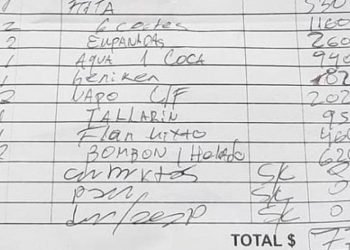 PAPA 530
2 6 cortes 1160
2 EMPANADAS 260
1 AGUA 1 COCA 940
1 Heniken 182
2 VAPO C/F 202
1 TALLARIN 95
1 Flan Mixto 460
2 BOMBON / Helado 620
cubiertos SK 8
pan SK 0
SK 0
TOTAL $ 7